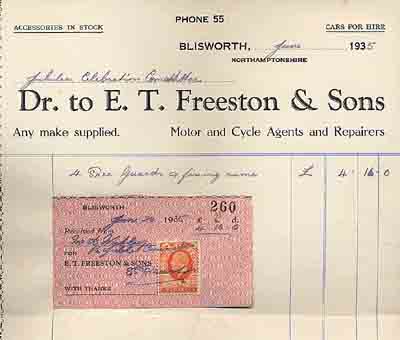 PHONE 55
ACCESSORIES IN STOCK
CARS FOR HIRE
BLISWORTH, June 1935
NORTHAMPTONSHIRE
Jubilee Celebration Committee
Dr. to E. T. Freeston & Sons
Any make supplied. Motor and Cycle Agents and Repairers
4 Tree Guards & fixing same £ 4 - 16 - 0
BLISWORTH 260
June 1935 £ s. d.
Received from 4 16 0
FOR
E. T. FREESTON & SONS
WITH THANKS